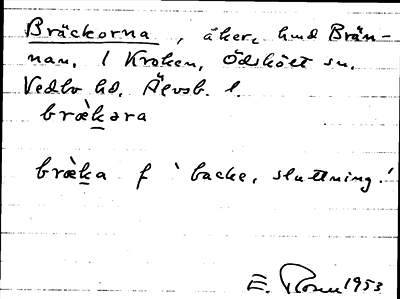 Bräckorna, åker, hmd Brän-
nan, 1 Kroken, Ödskölt sn.
Vedbo hd, Älvsb. l.
bræ̀kara
bræ̀ka f ‘backe, sluttning.’
E. 1953